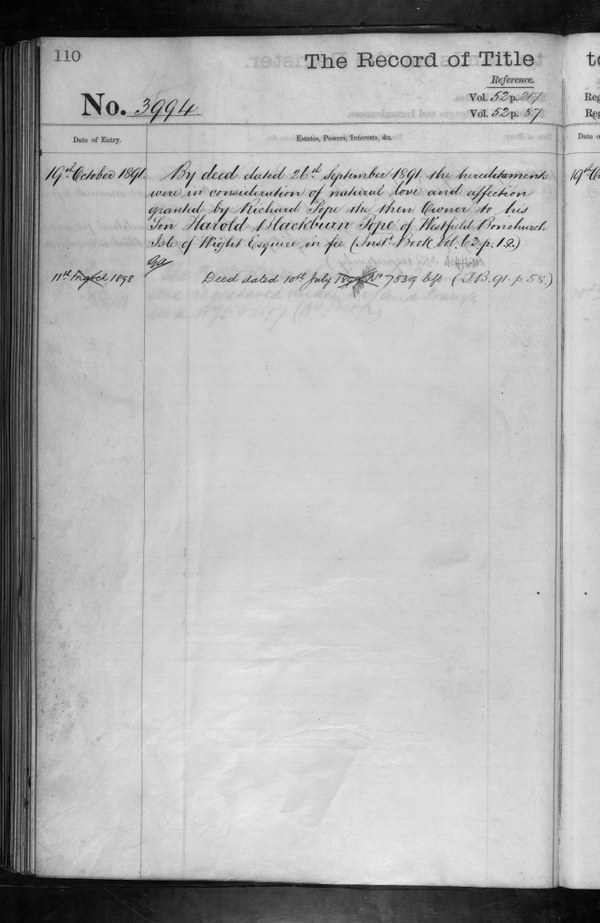 110
The Record of Title
Reference.
No. 3994
Vol. 52 p. 217
Vol. 52 p. 57
Date of Entry.
Estates, Powers, Interests, &c.
19th October 1891
By deed dated 26th September 1891 the hereditaments
were in consideration of natural love and affection
granted by Richard Pope the then Owner to his
Son Harold Blackburn Pope of Westfield Bonchurch
Isle of Wight Esquire in fee (Inst. Book Vol. 62 p. 12.)
11th March 1898
Deed dated 10th July No 7539 left (I.B. 91. p 55.)
to
Reg
Reg
Date o
19th Oc